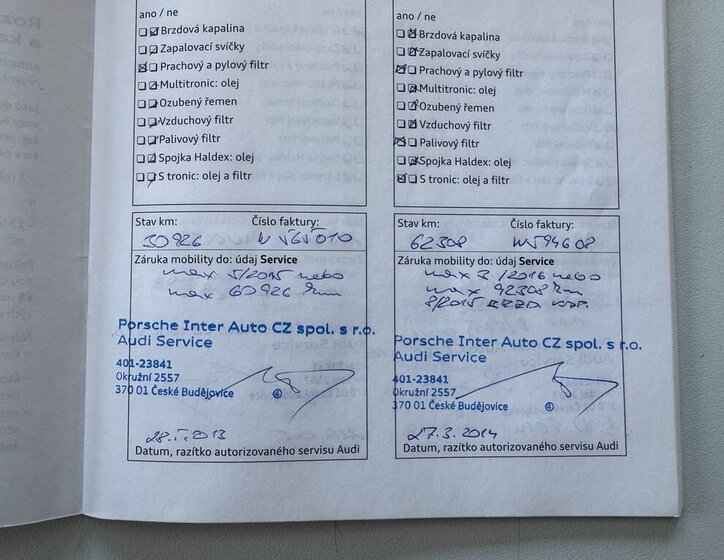 ano / ne
Brzdová kapalina
Zapalovací svíčky
Prachový a pylový filtr
Multitronic: olej
Ozubený řemen
Vzduchový filtr
Palivový filtr
Spojka Haldex: olej
S tronic: olej a filtr
Stav km: Číslo faktury:
30926 W 565010
Záruka mobility do: údaj Service
max 5/2015 nebo
max 60926 km
Porsche Inter Auto CZ spol. s r.o.
Audi Service
401-23841
Okružní 2557
370 01 České Budějovice 4
28.5.2013
Datum, razítko autorizovaného servisu Audi
ano / ne
Brzdová kapalina
Zapalovací svíčky
Prachový a pylový filtr
Multitronic: olej
Ozubený řemen
Vzduchový filtr
Palivový filtr
Spojka Haldex: olej
S tronic: olej a filtr
Stav km: Číslo faktury:
62308 W594608
Záruka mobility do: údaj Service
max 3/2016 nebo
max 92308 km
Porsche Inter Auto CZ spol. s r.o.
Audi Service
401-23841
Okružní 2557
370 01 České Budějovice 4
27.3.2014
Datum, razítko autorizovaného servisu Audi